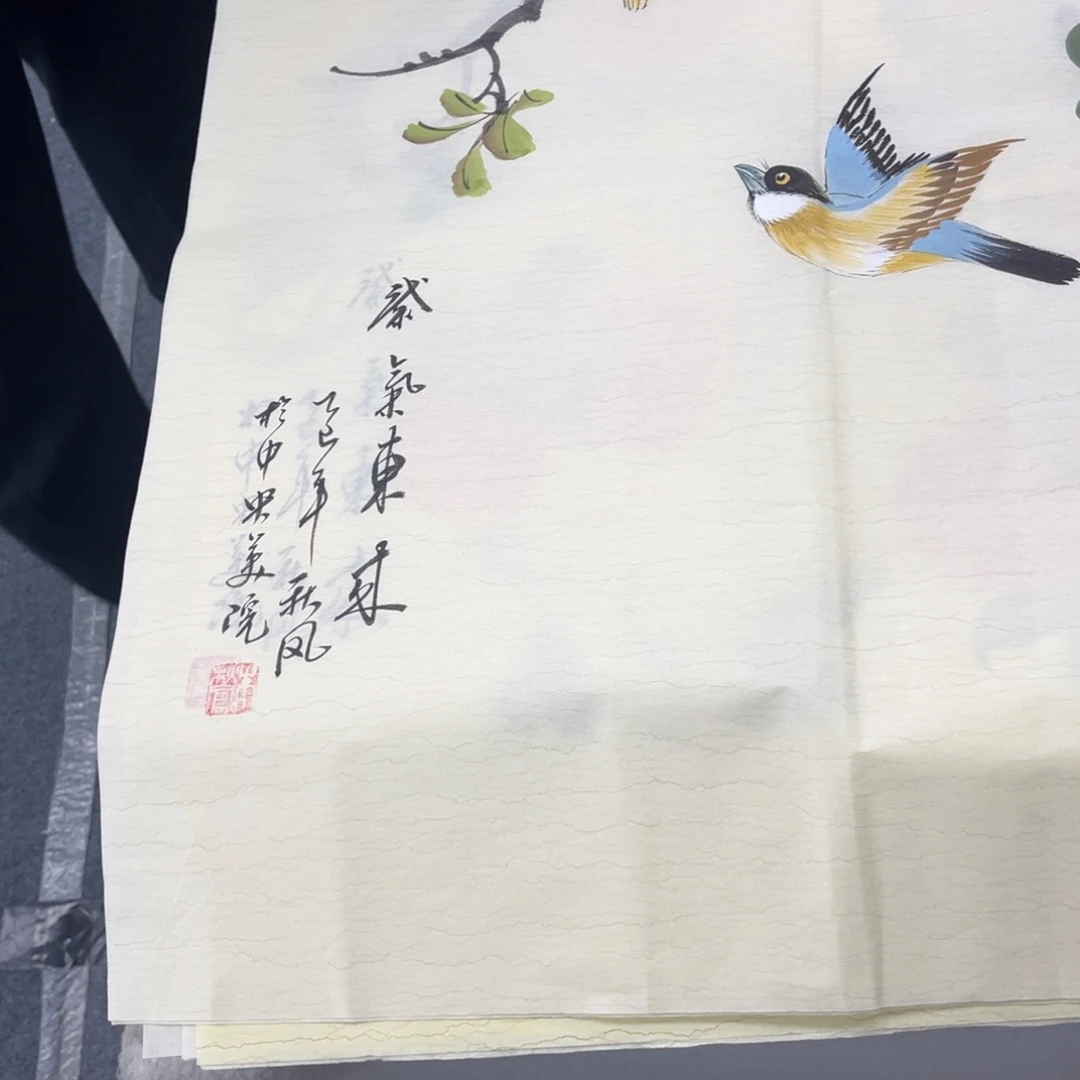 紫氣東来
乙巳年秋凤
於中央美院